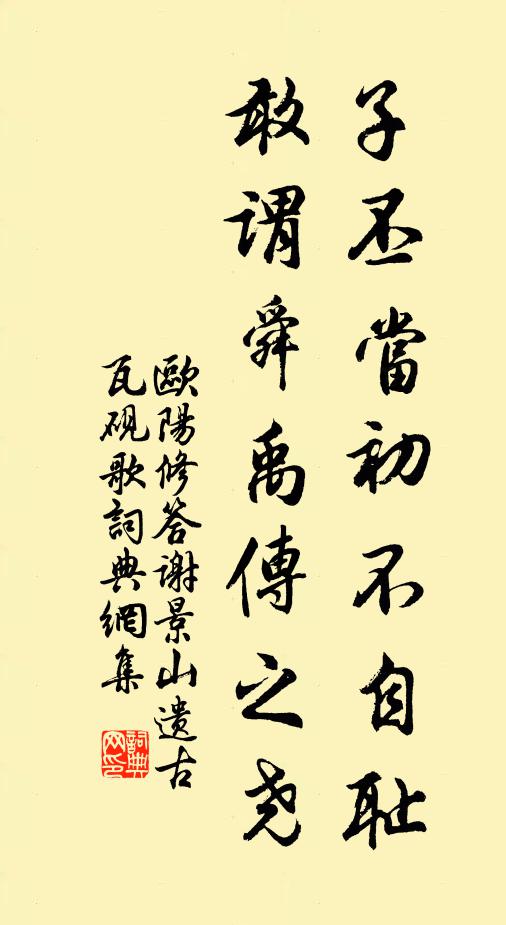 子丕當初不自耻
敢謂舜禹傳之尧
歐陽修答谢景山遺古
瓦硯歌詞典網集
詞典
网印